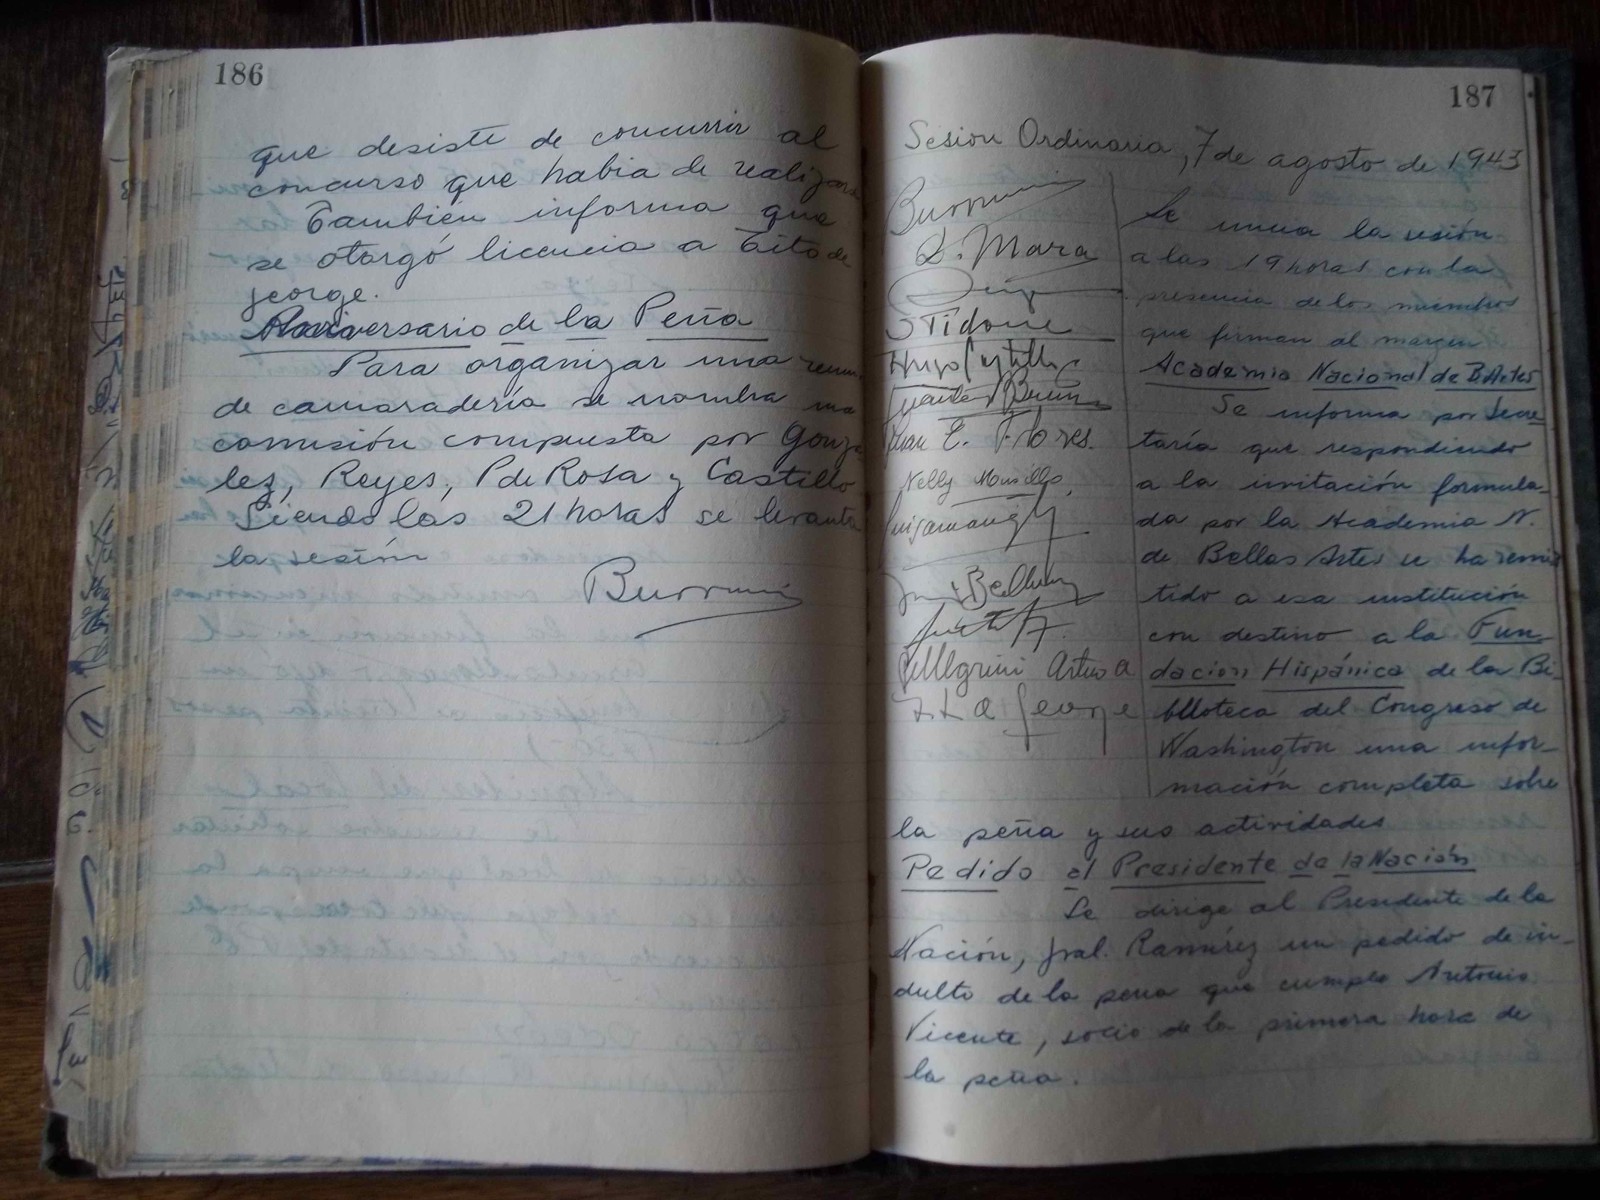 186
que desiste de concurrir al
concurso que habia de realizarse
También informa que
se otorgó licencia a Tito de
jeorge.
Aniversario de la Peña
Para organizar una
de camaradería se nombra una
comisión compuesta por Gonza
lez, Reyes, P de Rosa y Castillo
Siendo las 21 horas se levanta
la sesión
187
Sesión Ordinaria, 7 de agosto de 1943
D. Mara
Stidone
Hugo Castillo
Juan E. Flores.
Nelly Murillo
Pellegrini Arturo A
George
Se inicia la sesión
a las 19 horas con la
presencia de los miembros
que firman al margen
Academia Nacional de B. Artes
Se informa por Secre
taría que respondiendo
a la invitación formula-
da por la Academia N.
de Bellas Artes se ha remi
tido a esa institución
con destino a la Fun-
dación Hispánica de la Bi-
blioteca del Congreso de
Washington una infor-
mación completa sobre
la peña y sus actividades
Pedido al Presidente de la Nación
Se dirige al Presidente de la
Nación, gral. Ramírez un pedido de in-
dulto de la pena que cumple Antonio
Vicente, socio de la primera hora de
la peña.